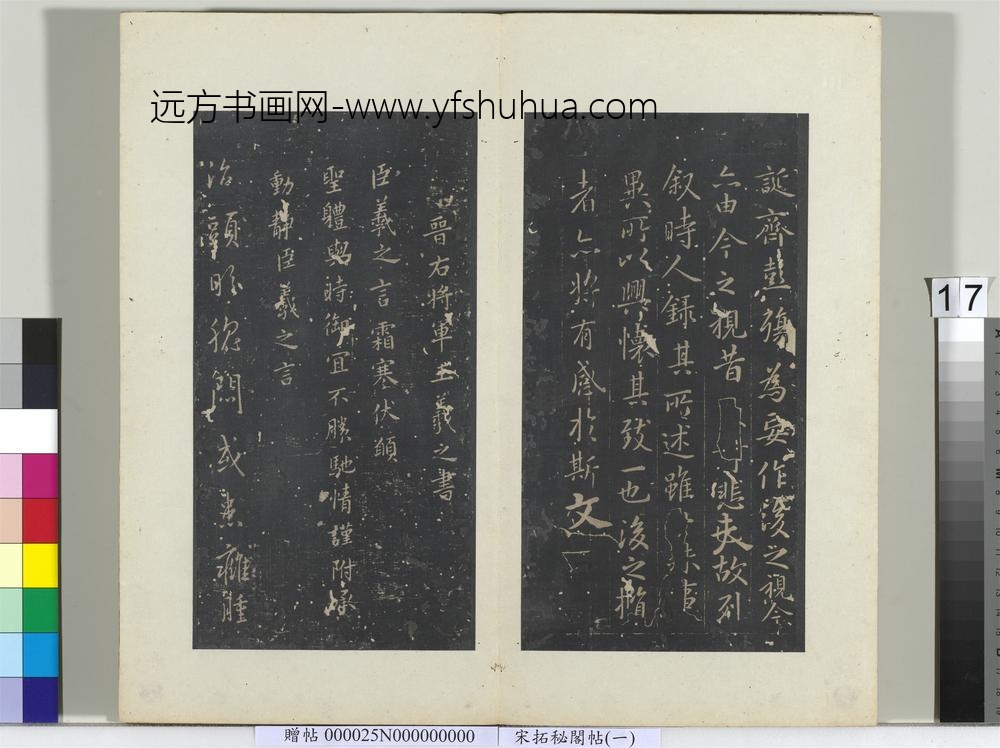 远方书画网-www.yfshuhua.com
誕齊彭殤為妄作後之視今
亦由今之視昔悲夫故列
叙時人録其所述雖
異所以興懷其致一也後之
者亦將有感於斯文
晉右將軍王羲之書
臣羲之言霜寒伏
聖體與時御宜不勝馳情謹附
動靜臣羲之言
治頭眩
或患癰腫
17
贈帖 000025N000000000
宋拓秘閣帖(一)